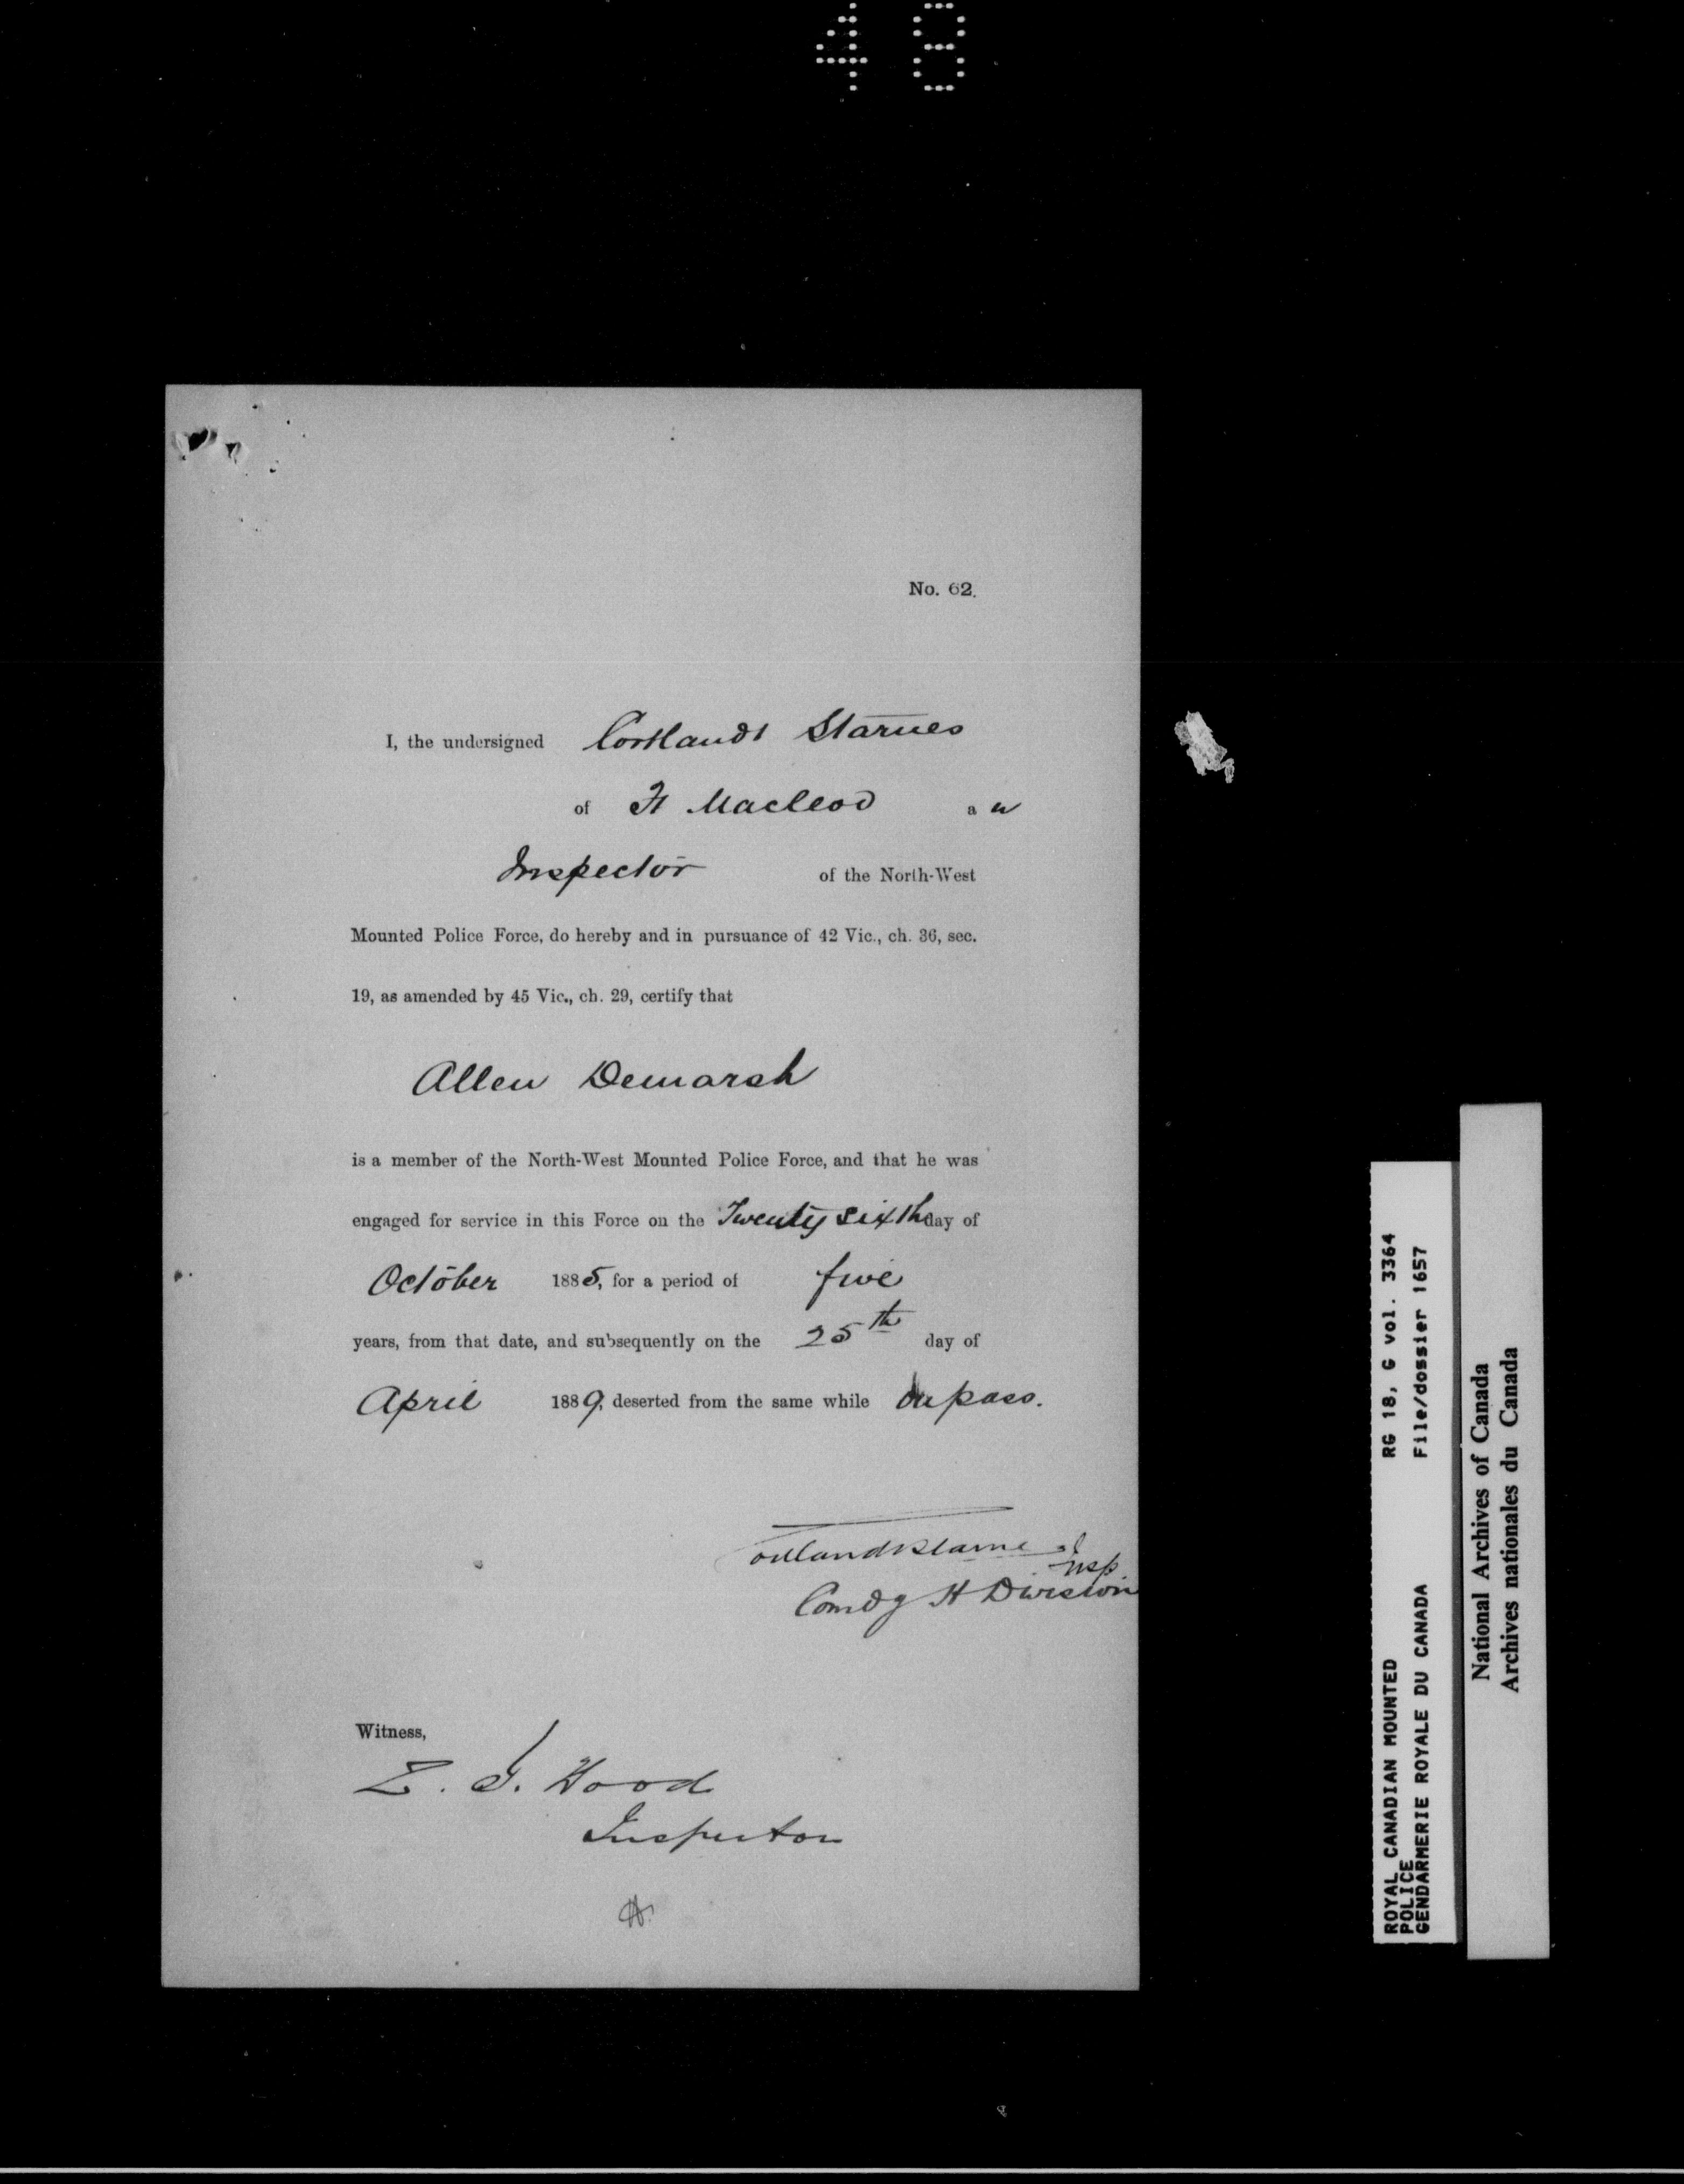 48
No. 62.
I, the undersigned Cortlandt Starnes
of Ft Macleod a n
Inspector of the North-West
Mounted Police Force, do hereby and in pursuance of 42 Vic., ch. 36, sec.
19, as amended by 45 Vic., ch. 29, certify that
Allen Demarsh
is a member of the North-West Mounted Police Force, and that he was
engaged for service in this Force on the Twenty sixth day of
October 1885, for a period of five
years, from that date, and subsequently on the 25th day of
April 1889, deserted from the same while on pass.
Cortlandt Starnes Insp
Comdg H Division
Witness,
Z. T. Wood
Inspector
ROYAL CANADIAN MOUNTED RG 18, G vol. 3364
POLICE
GENDARMERIE ROYALE DU CANADA File/dossier 1657
National Archives of Canada
Archives nationales du Canada